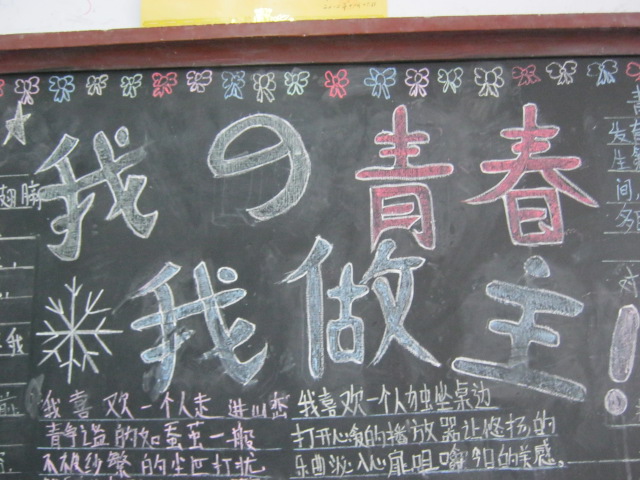 我の青春
我做主!
我喜欢一个人走进山峦
静谧的如蚕茧一般
不被纷繁的尘世打扰
我喜欢一个人独坐桌边
打开心爱的播放器让悠扬的
乐曲淡入心扉咀嚼今日的美感。
翅膀
我
发生
间
多